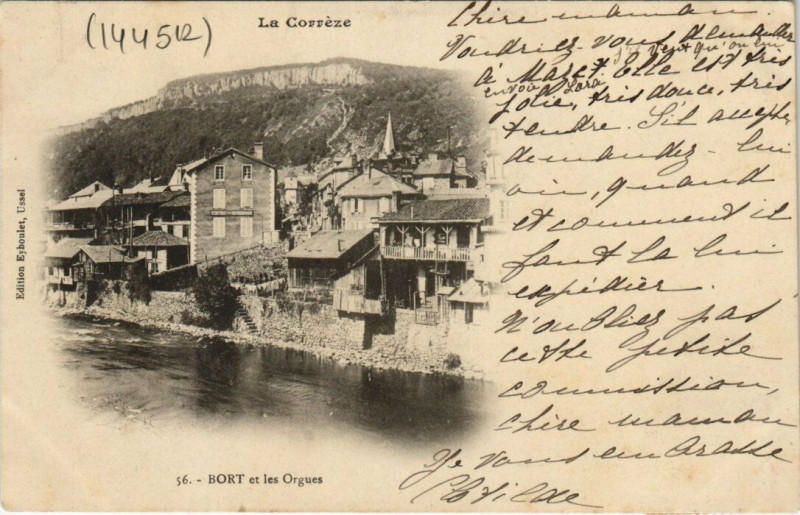 (14452)
La Corrèze
Chère maman.
Voudriez-vous demander
s'il veut qu'on lui
à Marc? Elle est très
envoie Lara
jolie, très douce, très
tendre. S'il accepte
demandez-lui
où, quand
et comment il
faut la lui
expédier.
N'oubliez pas
cette petite
commission,
chère maman
Je vous embrasse
Clotilde
Edition Eyboulet, Ussel
56. - BORT et les Orgues